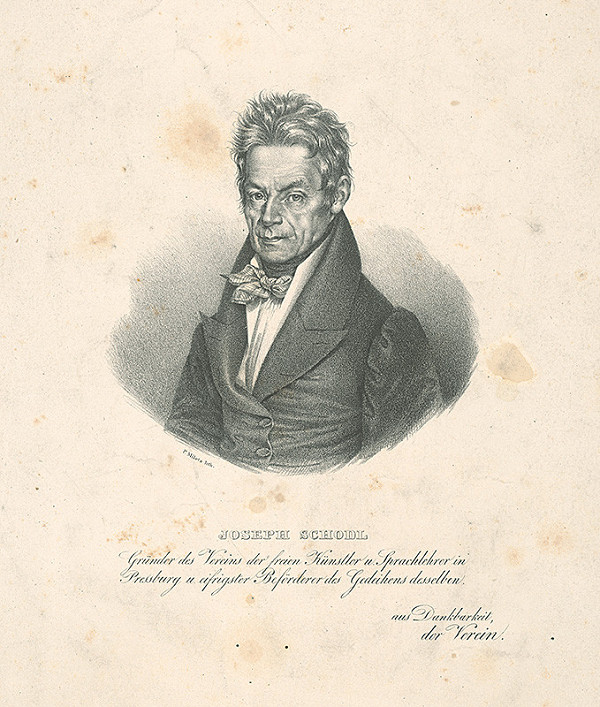 P. Miletz lith.
JOSEPH SCHODL
Gründer des Vereins der freien Künstler u. Sprachlehrer in
Pressburg u. eifrigster Beförderer des Gedeihens desselben.
aus Dankbarkeit,
der Verein.